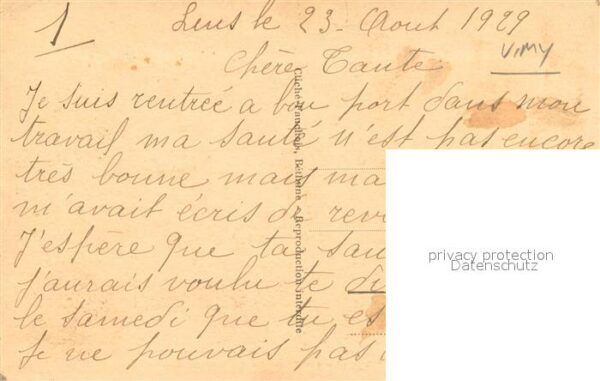 1
Lens le 23 Aout 1929
VIMY
Chère Tante
Je suis rentrée a bon port dans mon
travail ma santé n'est pas encore
très bonne mais ma
m'avait écris de rev
J'espère que ta san
j'aurais voulu te
le samedi que tu es
Je ne pouvais pas
Béthune - Reproduction interdite
privacy protection
Datenschutz